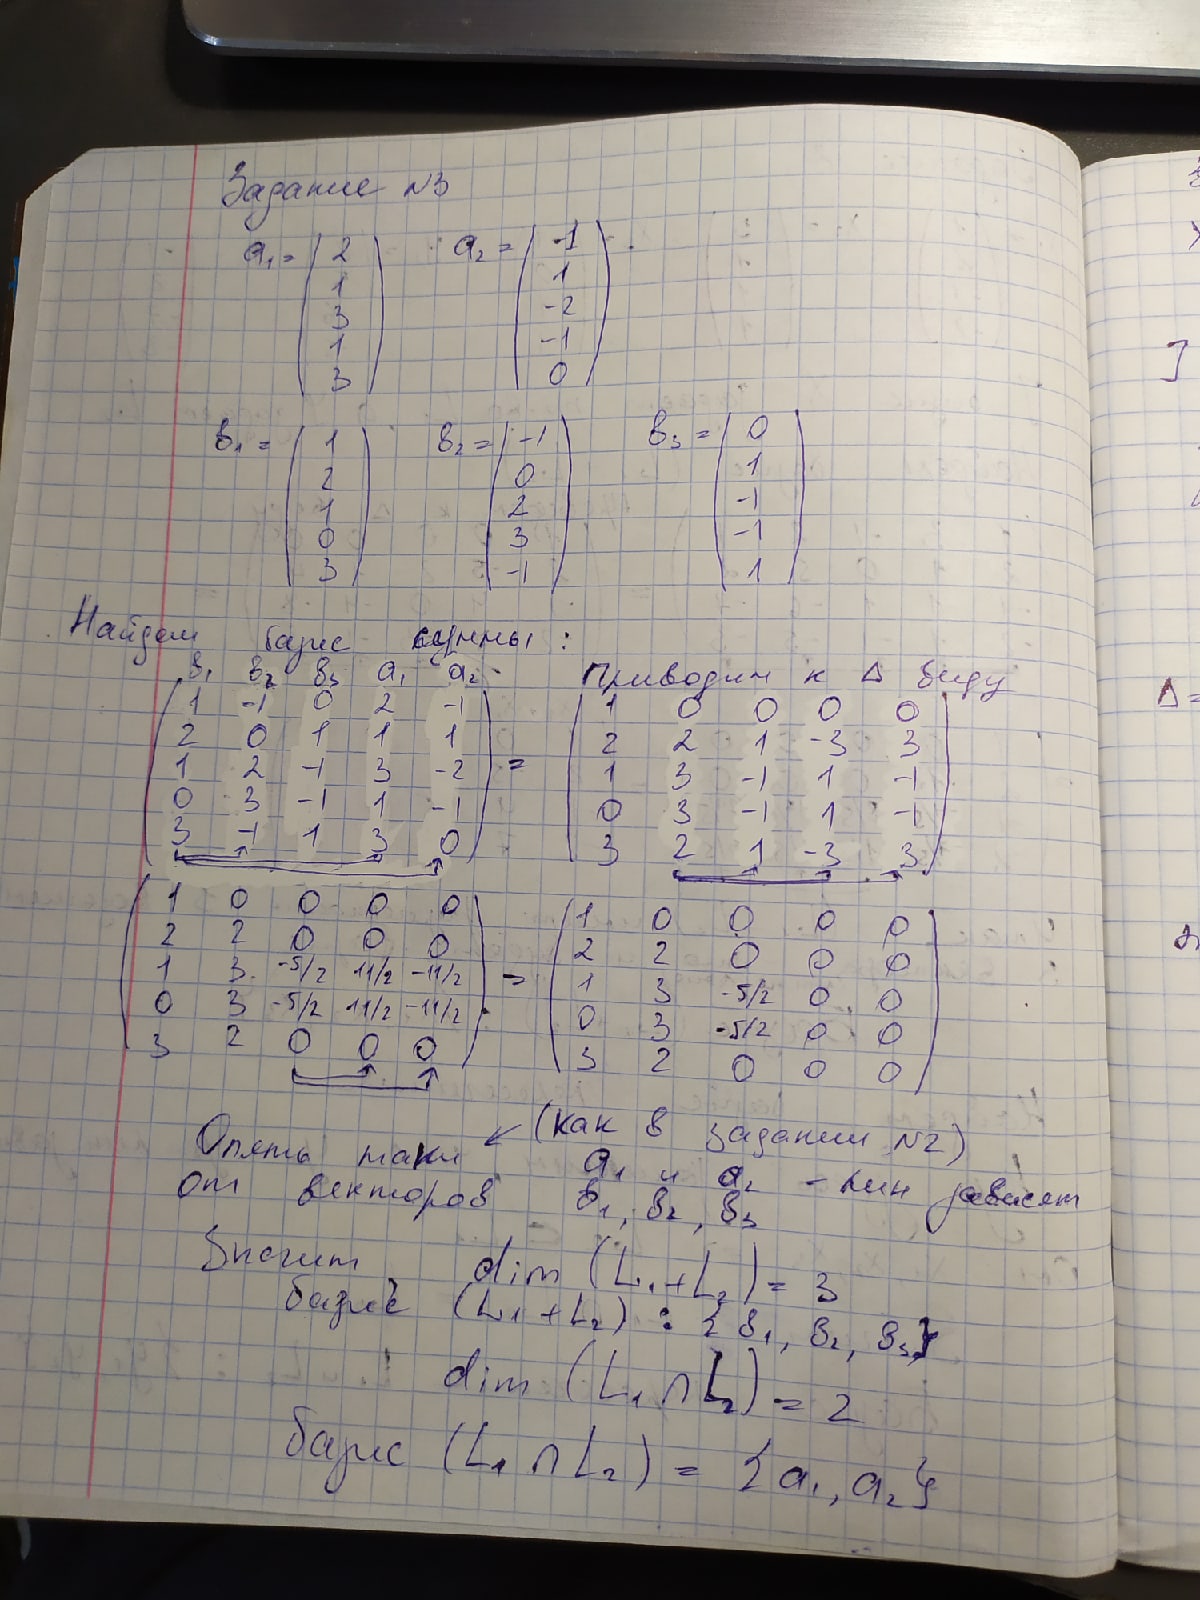 Задание №3
a₁ = (2 1 3 1 3) a₂ = (-1 1 -2 -1 0)
в₁ = (1 2 1 0 3) в₂ = (-1 0 2 3 -1) в₃ = (0 1 -1 -1 1)
Найдем базис суммы:
в₁ в₂ в₃ a₁ a₂ Приводим к Δ виду
1 -1 0 2 -1
2 0 1 1 1
1 2 -1 3 -2
0 3 -1 1 -1
3 -1 1 3 0
=
1 0 0 0 0
2 2 1 -3 3
1 3 -1 1 -1
0 3 -1 1 -1
3 2 1 -3 3
1 0 0 0 0
2 2 0 0 0
1 3 -5/2 11/2 -11/2
0 3 -5/2 11/2 -11/2
3 2 0 0 0
=
1 0 0 0 0
2 2 0 0 0
1 3 -5/2 0 0
0 3 -5/2 0 0
3 2 0 0 0
(как в задании №2)
Опять таки a₁ и a₂ - лин зависят
от векторов в₁, в₂, в₃
Значит dim (L₁+L₂) = 3
базис (L₁+L₂) : {в₁, в₂, в₃}
dim (L₁∩L₂) = 2
базис (L₁∩L₂) = {a₁, a₂}
Δ=